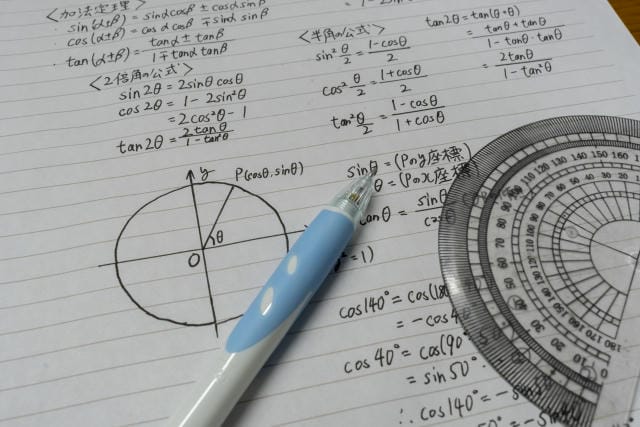 <加法定理>
sin(α±β) = sinαcosβ ± cosαsinβ
cos(α±β) = cosαcosβ ∓ sinαsinβ
tan(α±β) = tanα ± tanβ / 1 ∓ tanαtanβ
<2倍角の公式>
sin2θ = 2sinθcosθ
cos2θ = 1 - 2sin²θ
= 2cos²θ - 1
tan2θ = 2tanθ / 1 - tan²θ
<半角の公式>
sin² θ/2 = 1 - cosθ / 2
cos² θ/2 = 1 + cosθ / 2
tan² θ/2 = 1 - cosθ / 1 + cosθ
tan2θ = tan(θ+θ)
= tanθ + tanθ / 1 - tanθ・tanθ
= 2tanθ / 1 - tan²θ
y
P(cosθ, sinθ)
θ
O
sinθ = (Pのy座標)
θ = (Pのx座標)
tanθ = sinθ
= 1)
cos140° = cos(18
= -cos4
cos40° = cos(90°
= sin50°
∴ cos140° = -sin
50 60 70 80 90 100 110 120 130 140 150 160
180 170 160 150 140 130
0 10 20 30 40